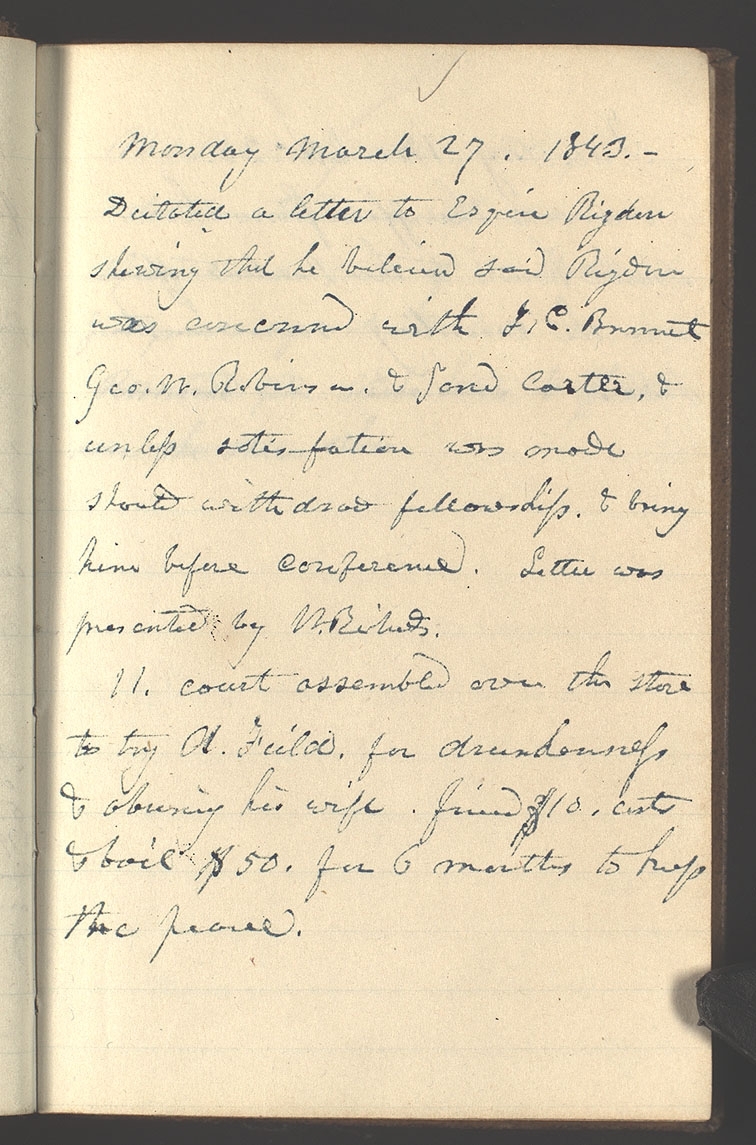 Monday March 27. 1843.-
Dictated a letter to Esqin Rigdon
shewing that he believed said Rigdon
was concerned with J. C. Bennet
Geo. W. Robinson. & Jared Carter, &
unless satisfaction was made
should withdraw fellowship. & bring
him before conference. Letter was
presented by W. Richards.
11. court assembled over the store
to try A. Field. for drunkenness
& abusing his wife. fined $10. costs
& bail $50. for 6 months to keep
the peace.